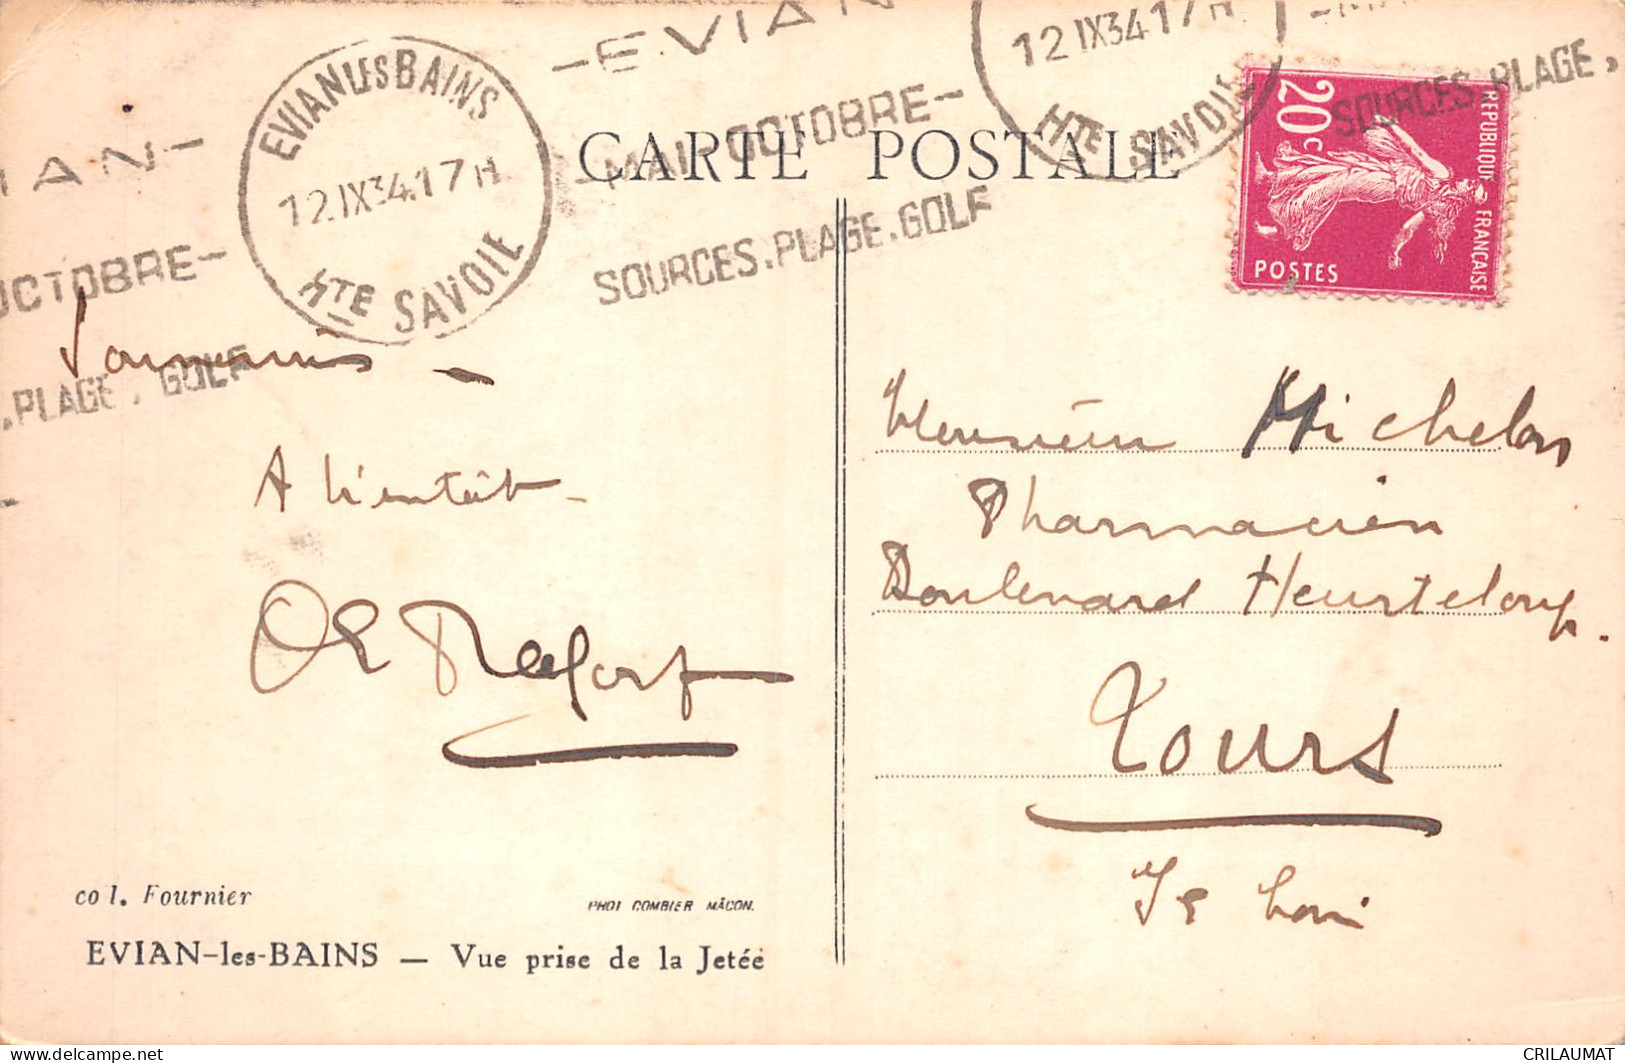 -EVIAN
12 IX34 17H
HTE SAVOIE
EVIAN LES BAINS
12.IX34.17H
HTE SAVOIE
CARTE POSTALE
-MAI OCTOBRE-
SOURCES.PLAGE.GOLF
SOURCES.PLAGE.
IAN-
OCTOBRE-
.PLAGE.GOLF
20c
REPUBLIQUE FRANÇAISE
POSTES
Souvenirs -
A bientôt -
Monsieur Michelon
Pharmacien
Boulevard Heurteloup.
Tours
Is Loir
col. Fournier
PHOT COMBIER MÂCON.
EVIAN-les-BAINS — Vue prise de la Jetée
https://www.delcampe.net
CRILAUMAT